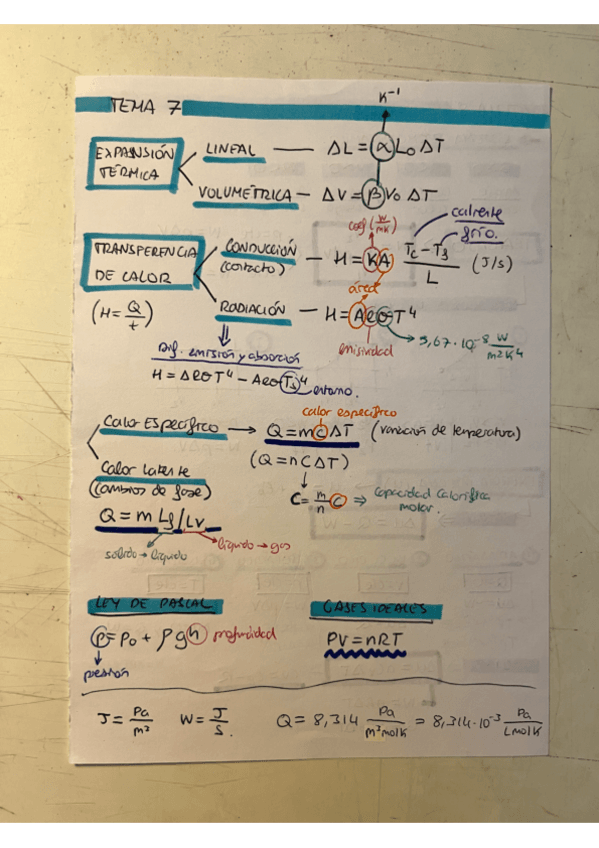 TEMA 7
K⁻¹
EXPANSIÓN TÉRMICA
LINEAL — ΔL = α L₀ ΔT
VOLUMÉTRICA — ΔV = β V₀ ΔT
TRANSFERENCIA DE CALOR
(H = Q/t)
coef (W/mK)
caliente
frío.
CONDUCCIÓN (contacto) — H = KA (Tc - Tf)/L (J/s)
área
RADIACIÓN — H = AeσT⁴
emisividad
5,67·10⁻⁸ W/m²K⁴
Dif. emisión y absorción
H = AeσT⁴ - AeσTs⁴
entorno.
calor específico
Calor Específico → Q = mcΔT (variación de temperatura)
(Q = nCΔT)
C = m/n c ⇒ Capacidad calorífica molar.
Calor latente
(cambios de fase)
Q = m Lf/Lv
sólido → líquido
líquido → gas
LEY DE PASCAL
p = p₀ + ρgh profundidad
presión
GASES IDEALES
PV = nRT
J = Pa/m² W = J/s. Q = 8,314 Pa/m³molK = 8,314·10⁻³ Pa/LmolK